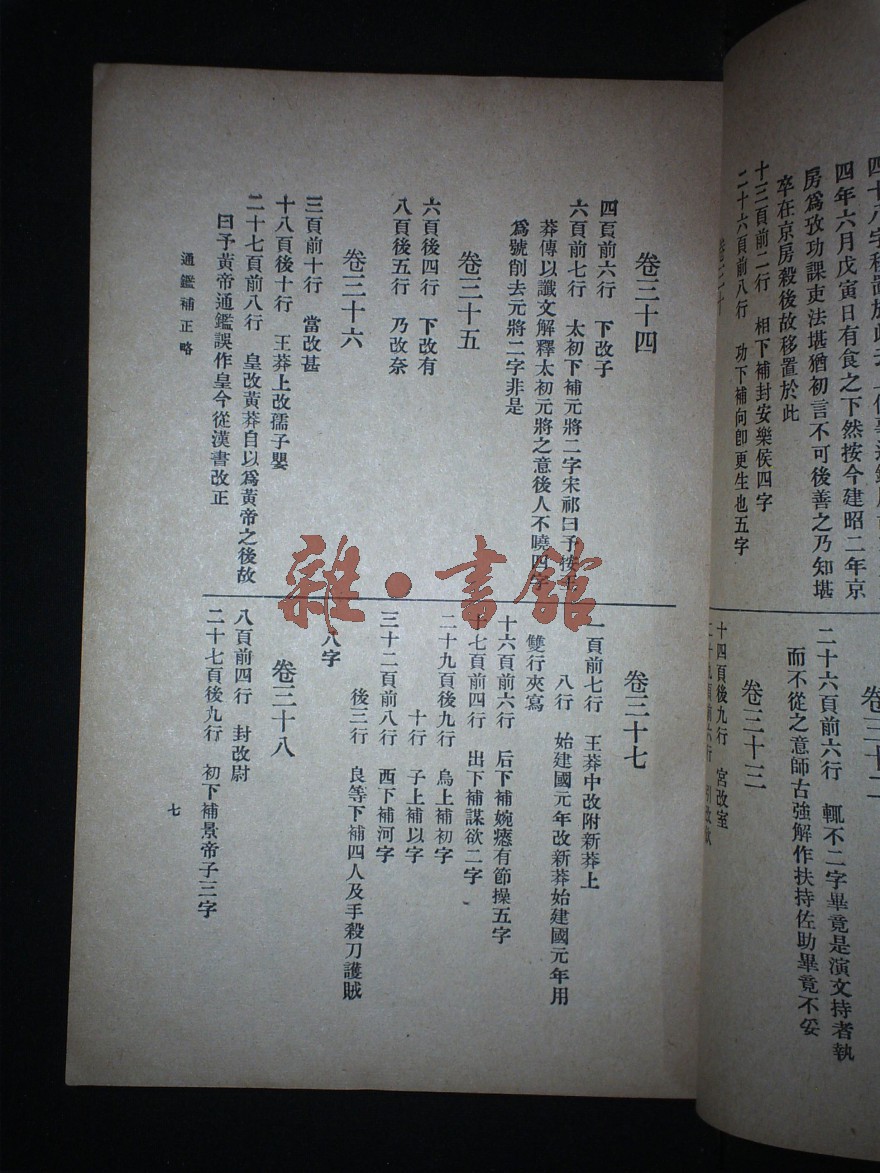 四年六月戊寅日有食之下然按今建昭二年京
房爲攷功課吏法堪猶初言不可後善之乃知堪
卒在京房殺後故移置於此
十三頁前二行　相下補封安樂侯四字
二十六頁前八行　功下補向卽更生也五字
二十六頁前六行　輒不二字畢竟是演文持者執
而不從之意師古強解作扶持佐助畢竟不妥
卷三十三
十四頁後九行　宮改室
卷三十四
四頁前六行　下改子
六頁前七行　太初下補元將二字宋祁曰予按
莽傳以讖文解釋太初元將之意後人不曉四字
爲號削去元將二字非是
卷三十五
六頁後四行　下改有
八頁後五行　乃改奈
卷三十六
三頁前十行　當改甚
十八頁後十行　王莽上改孺子嬰
二十七頁前八行　皇改黃莽自以爲黃帝之後故
曰予黃帝通鑑誤作皇今從漢書改正
通鑑補正略
卷三十七
一頁前七行　王莽中改附新莽上
八行　始建國元年改新莽始建國元年用
雙行夾寫
十六頁前六行　后下補婉瘱有節操五字
十七頁前四行　出下補謀欲二字
二十九頁後九行　烏上補初字
十行　子上補以字
三十二頁前八行　西下補河字
後三行　良等下補四人及手殺刀護賊
八字
卷三十八
八頁前四行　封改尉
二十七頁後九行　初下補景帝子三字
七
雜·書館